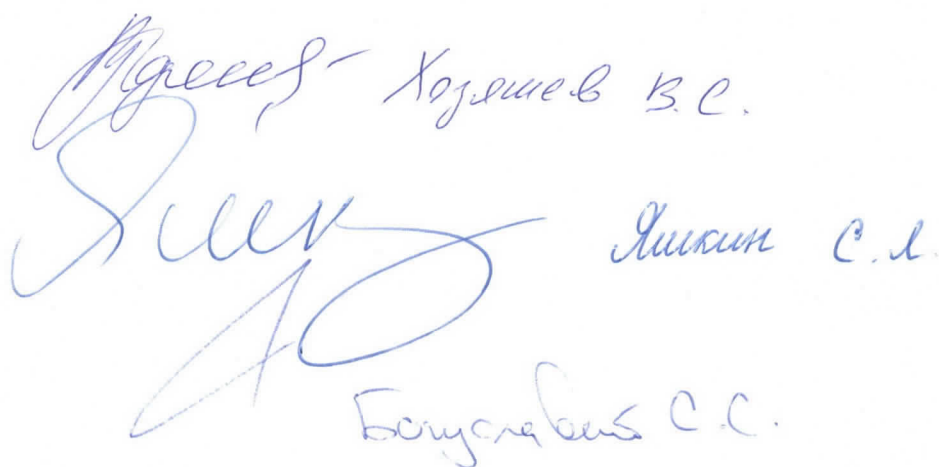 Хозяшев В.С.
Яшкин С.А.
Богуславский С.С.